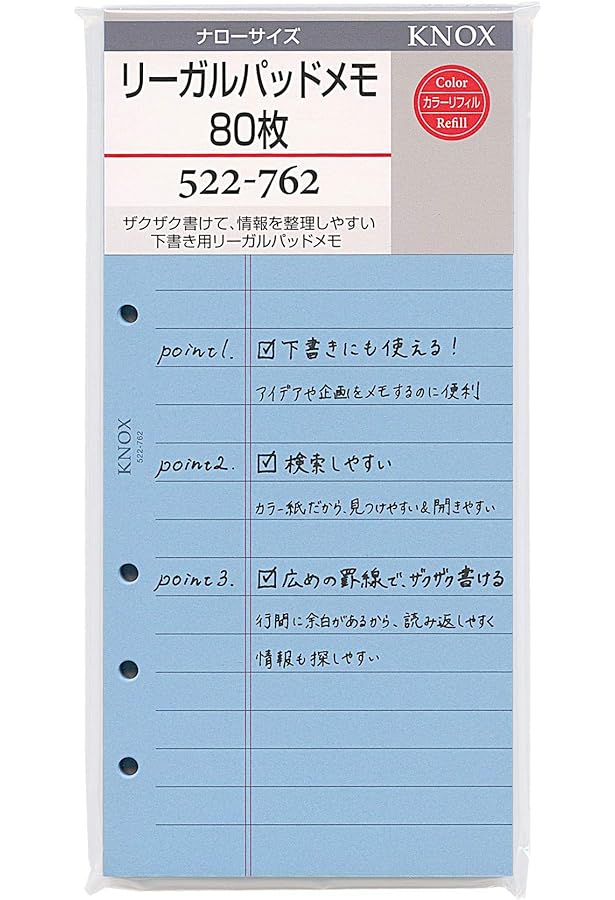 ナローサイズ
KNOX
リーガルパッドメモ
80枚
Color
カラーリフィル
Refill
522-762
ザクザク書けて、情報を整理しやすい
下書き用リーガルパッドメモ
point1. ☑下書きにも使える!
アイデアや企画をメモするのに便利
KNOX
522-762
point2. ☑検索しやすい
カラー紙だから、見つけやすい&開きやすい
point3. ☑広めの罫線で、ザクザク書ける
行間に余白があるから、読み返しやすく
情報も探しやすい